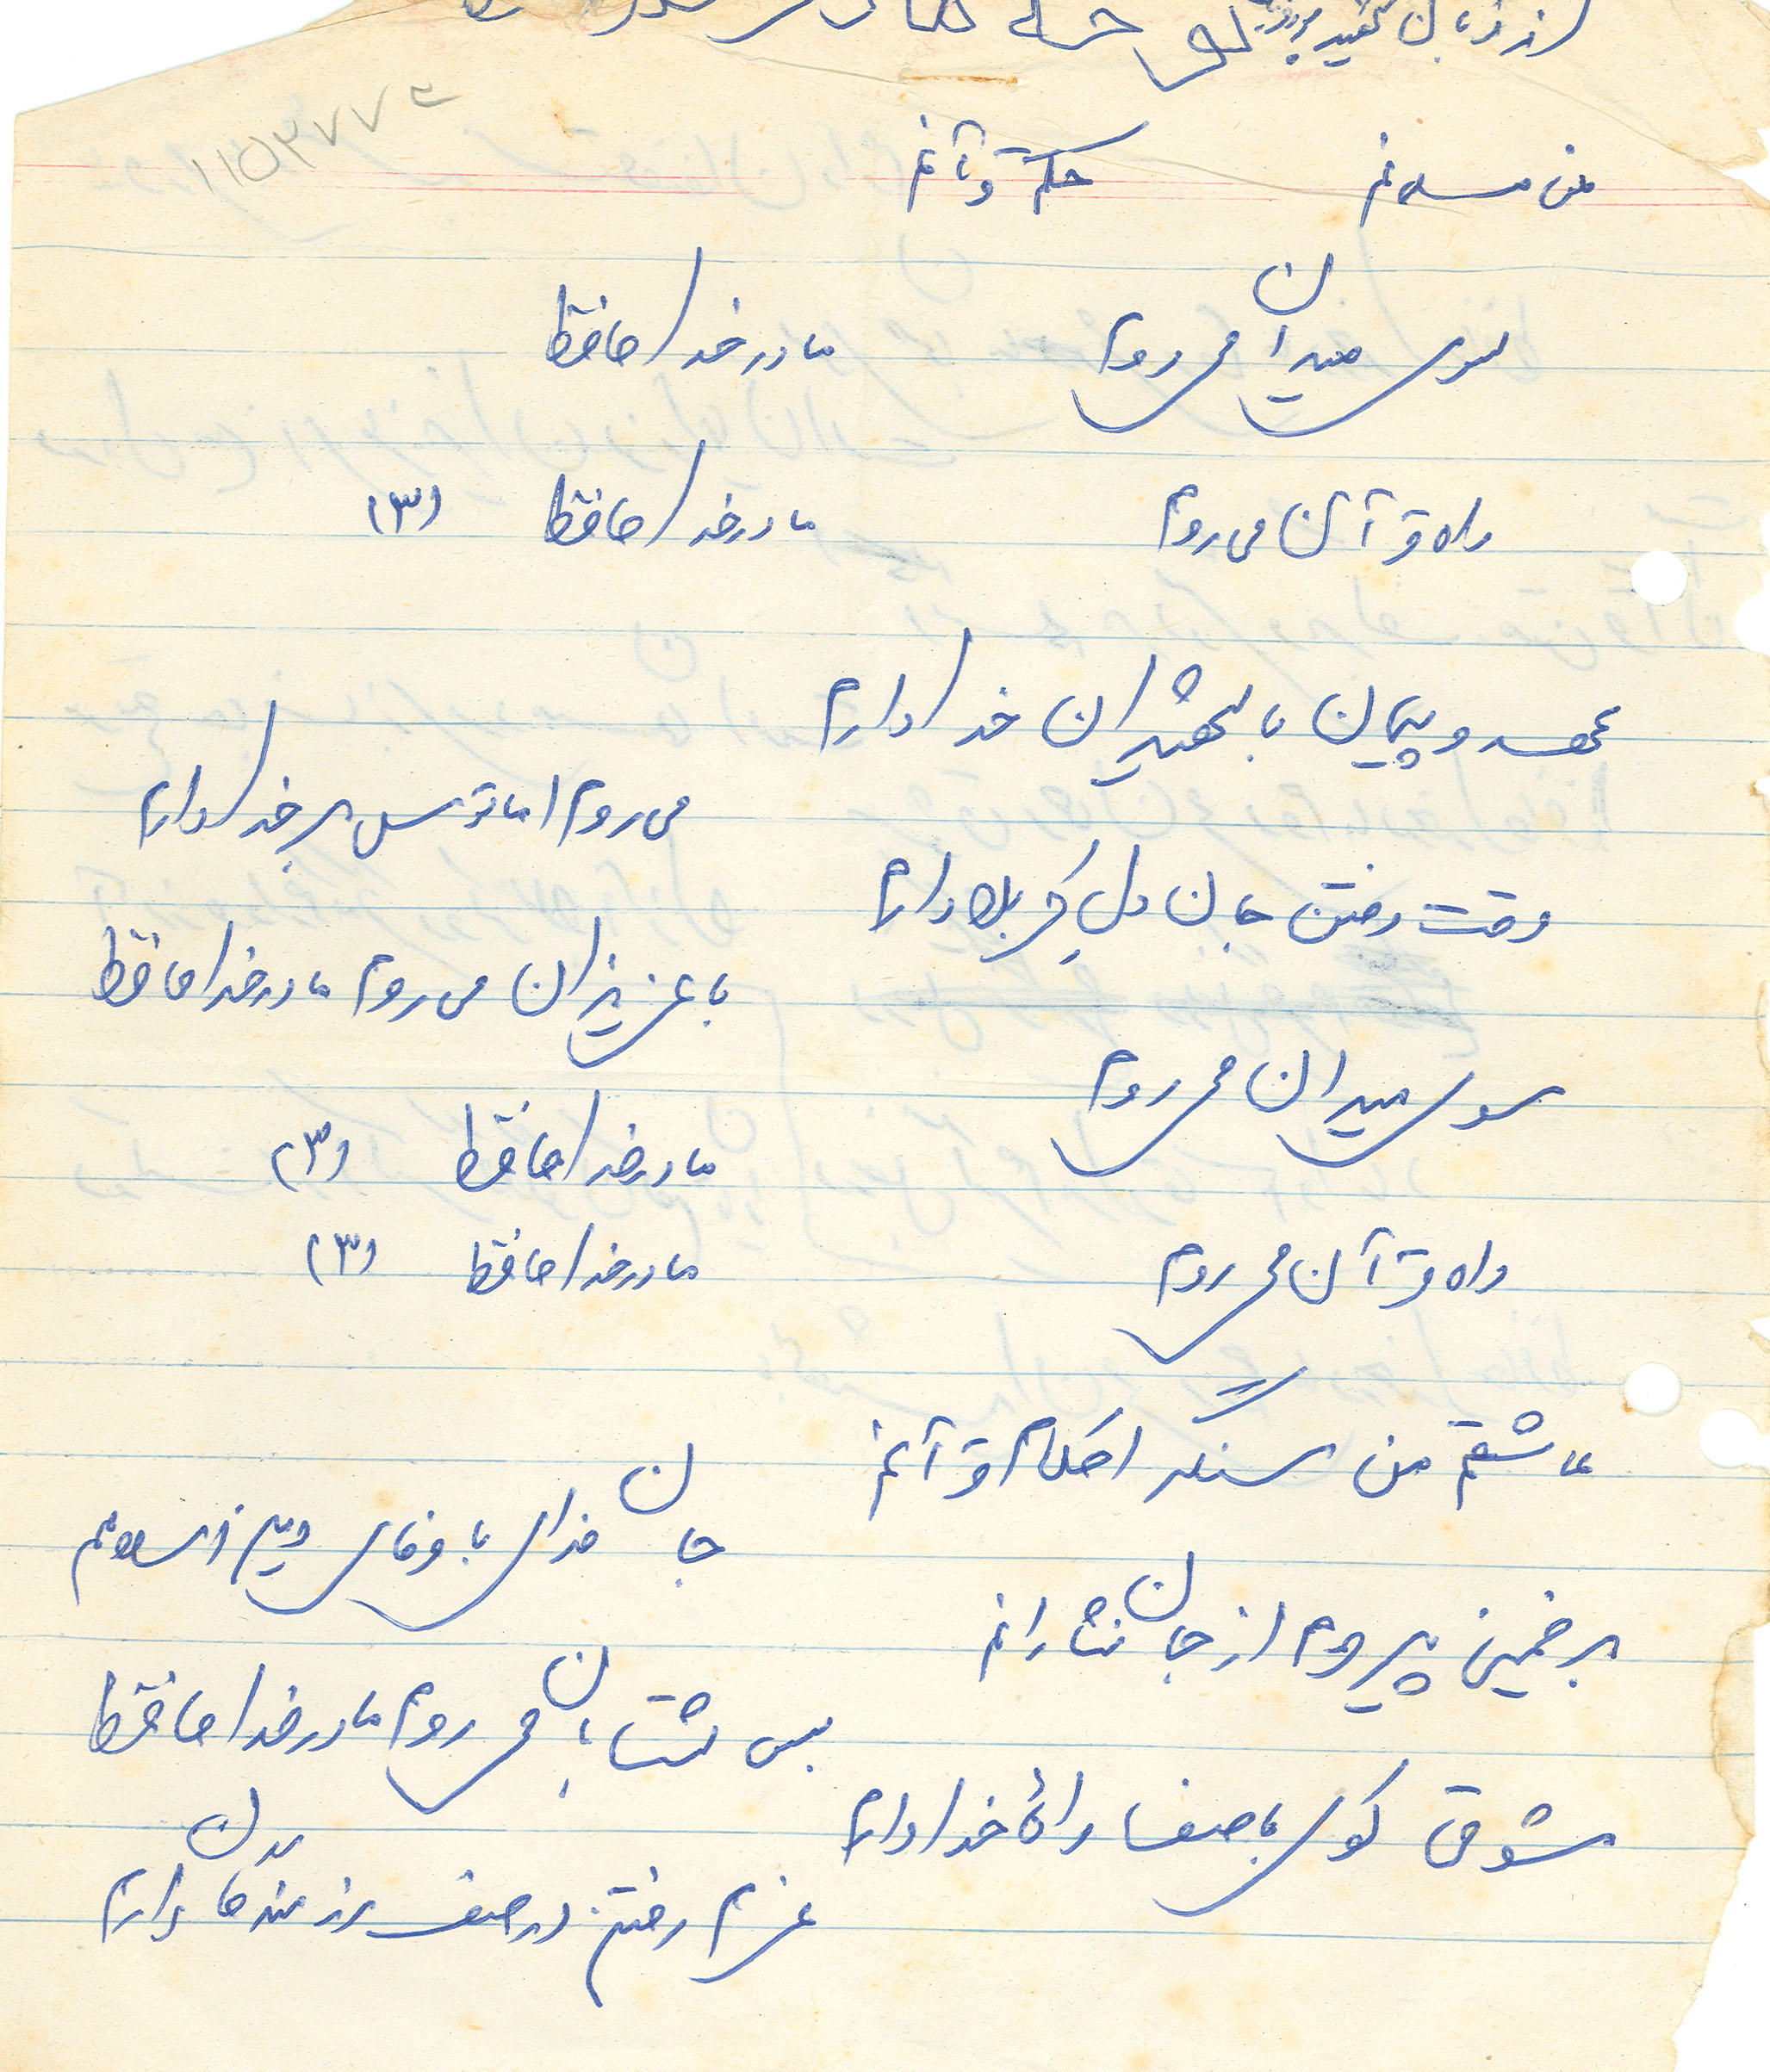 از زبان شهید نوحه های
۱۱۵۳۷۷۶
من مسلمانم حکم قرآنم
سوی میدان می روم مادر خداحافظ
راه قرآن می روم مادر خداحافظ (۳)
عهد و پیمان با شهیدان خدا دارم
می روم اما ترس بر خدا دارم
وقت رفتن جان دل کربلا دارم
با عزیزان می روم مادر خداحافظ
سوی میدان می روم
مادر خداحافظ (۳)
راه قرآن می روم مادر خداحافظ (۳)
عاشقم من سنگر احکام قرآنم
جان فدای با وفای دین اسلامم
بر خمینی پیروم از جان نثارانم
بس شتابان می روم مادر خداحافظ
شوق کوی با صفا راه خدا دارم
عزم رفتن در صف رزمندگان دارم